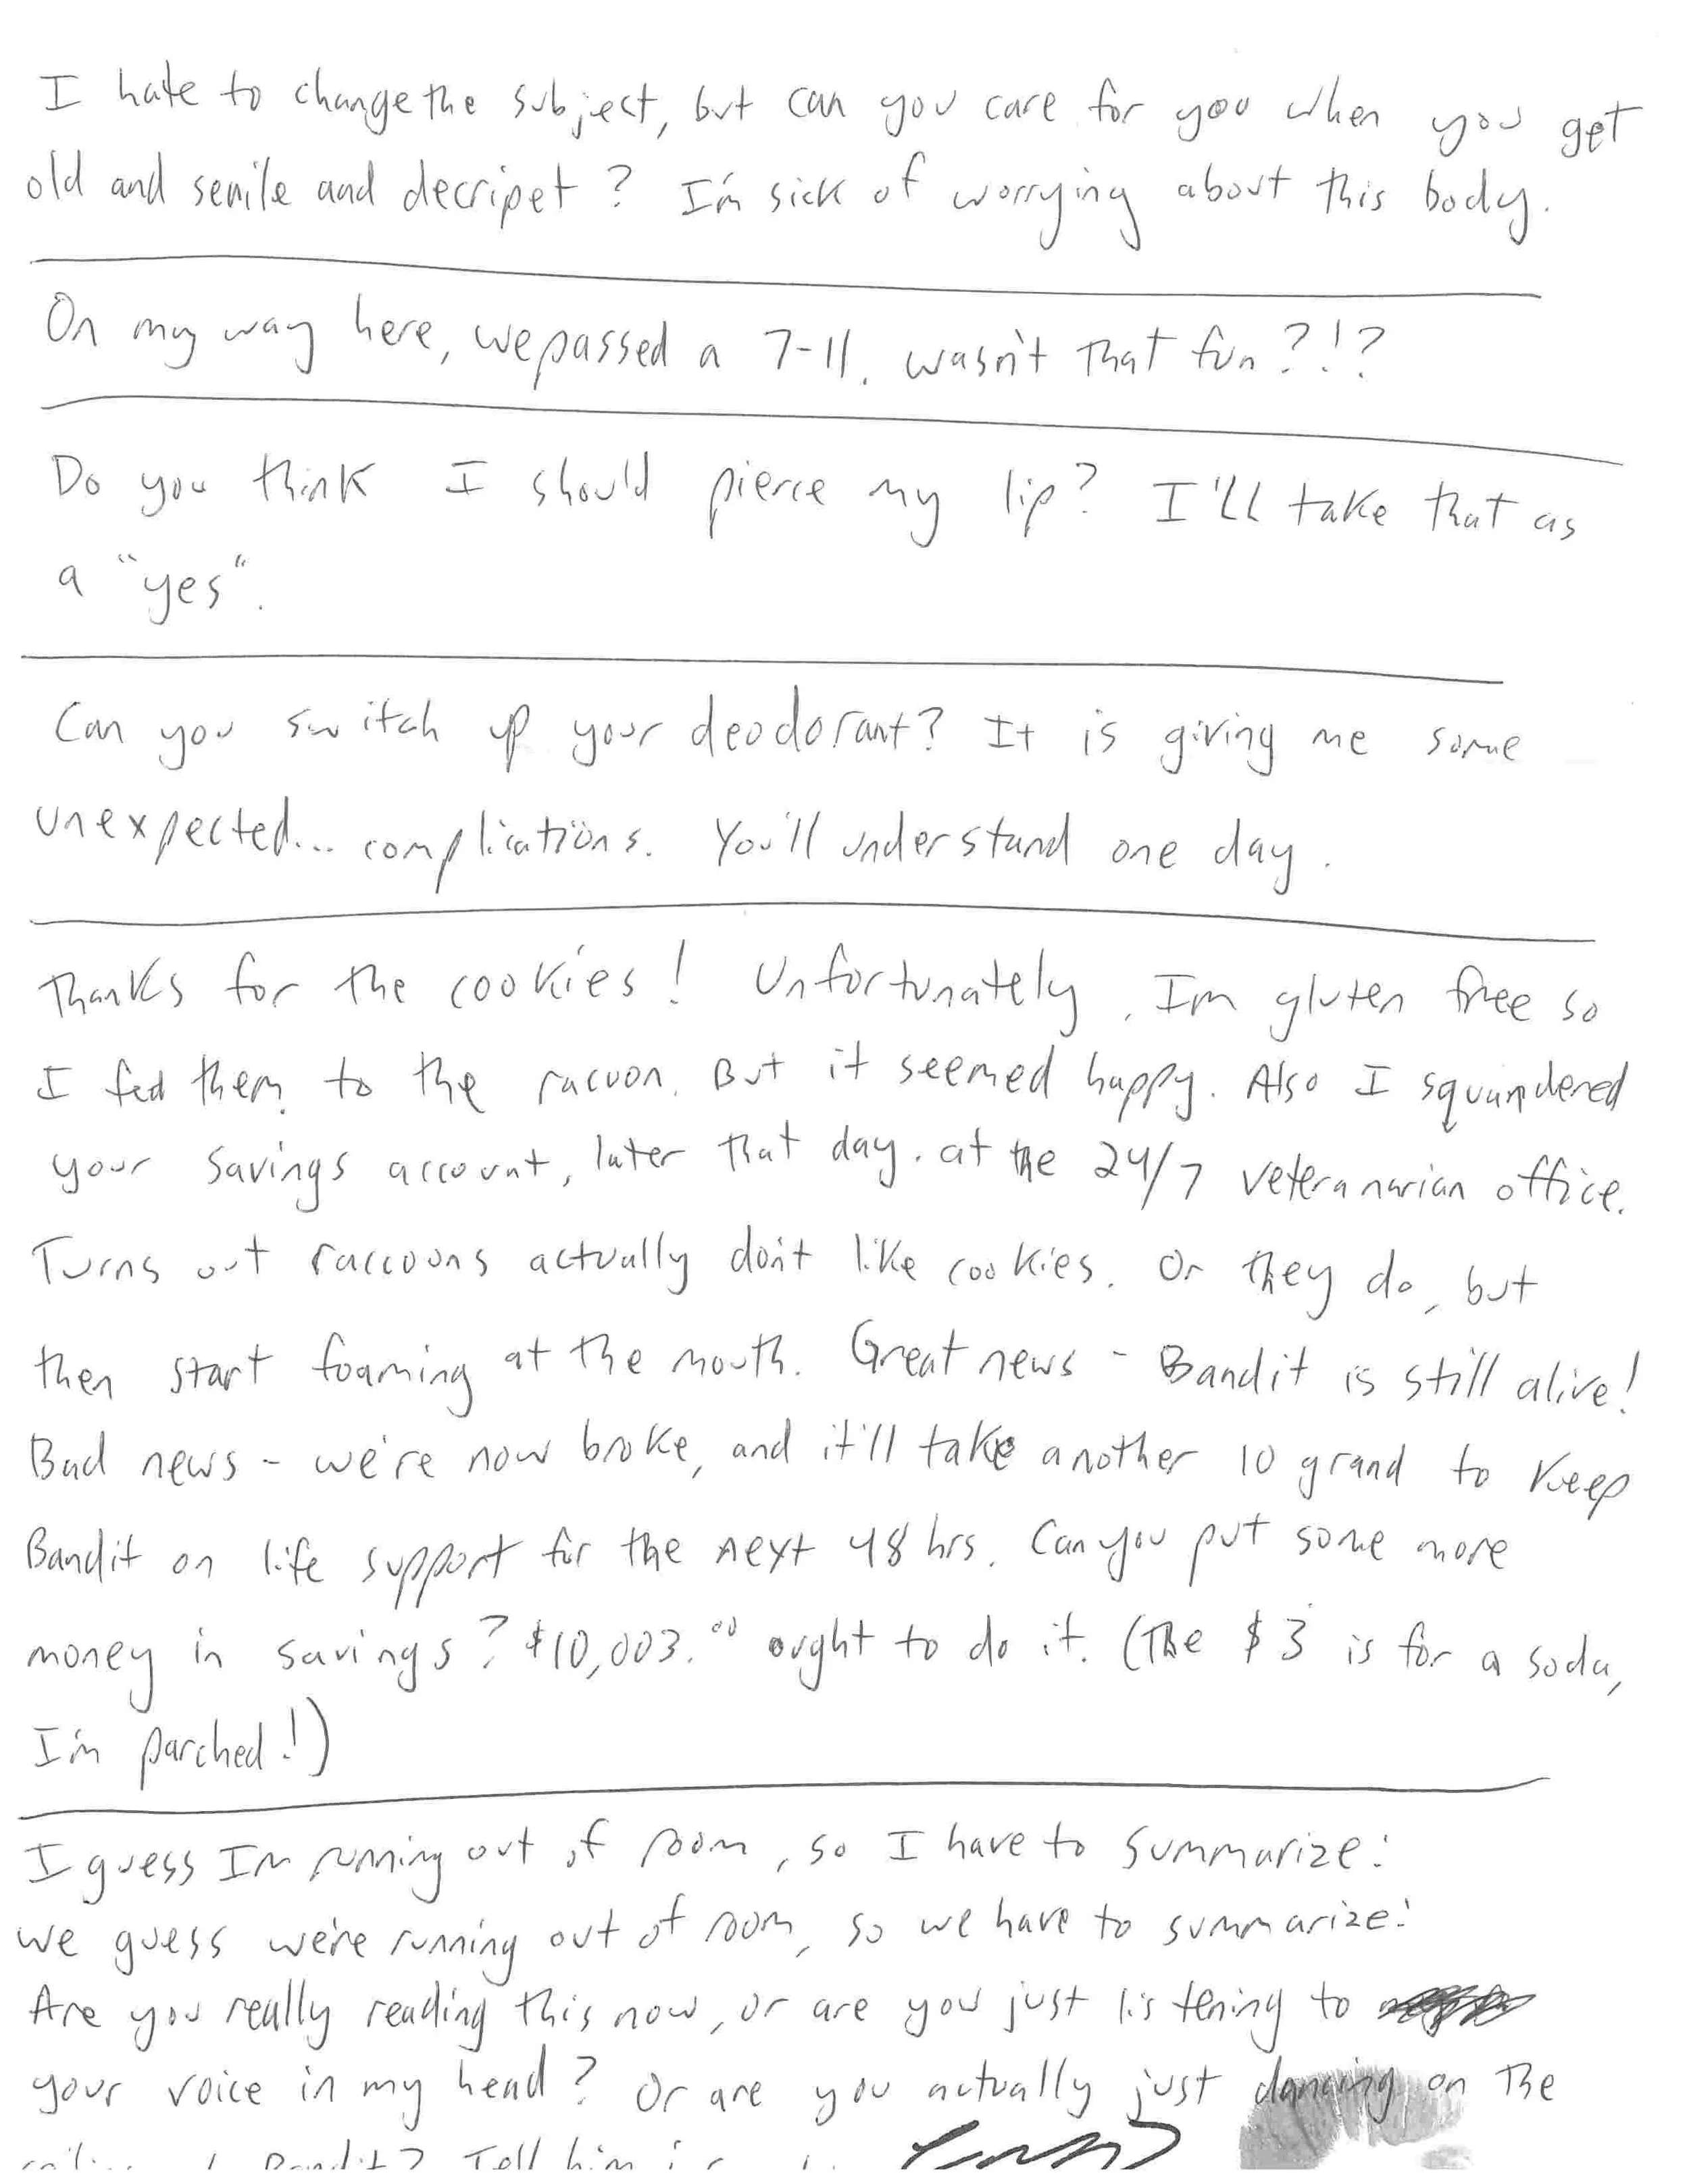 I hate to change the subject, but can you care for you when you get
old and senile and decripet? I'm sick of worrying about this body.
On my way here, we passed a 7-11. wasn't that fun?!?
Do you think I should pierce my lip? I'll take that as
a "yes".
Can you switch up your deodorant? It is giving me some
unexpected... complications. You'll understand one day.
Thanks for the cookies! Unfortunately, I'm gluten free so
I fed them to the racoon. But it seemed happy. Also I squandered
your savings account, later that day. at the 24/7 veteranarian office.
Turns out raccoons actually don't like cookies. Or they do, but
then start foaming at the mouth. Great news - Bandit is still alive!
Bad news - we're now broke, and it'll take another 10 grand to keep
Bandit on life support for the next 48 hrs. Can you put some more
money in savings? $10,003.00 ought to do it. (The $3 is for a soda,
I'm parched!)
I guess I'm running out of room, so I have to summarize:
we guess we're running out of room, so we have to summarize:
Are you really reading this now, or are you just listening to
your voice in my head? Or are you actually just dancing on the
Bandit? Tell him